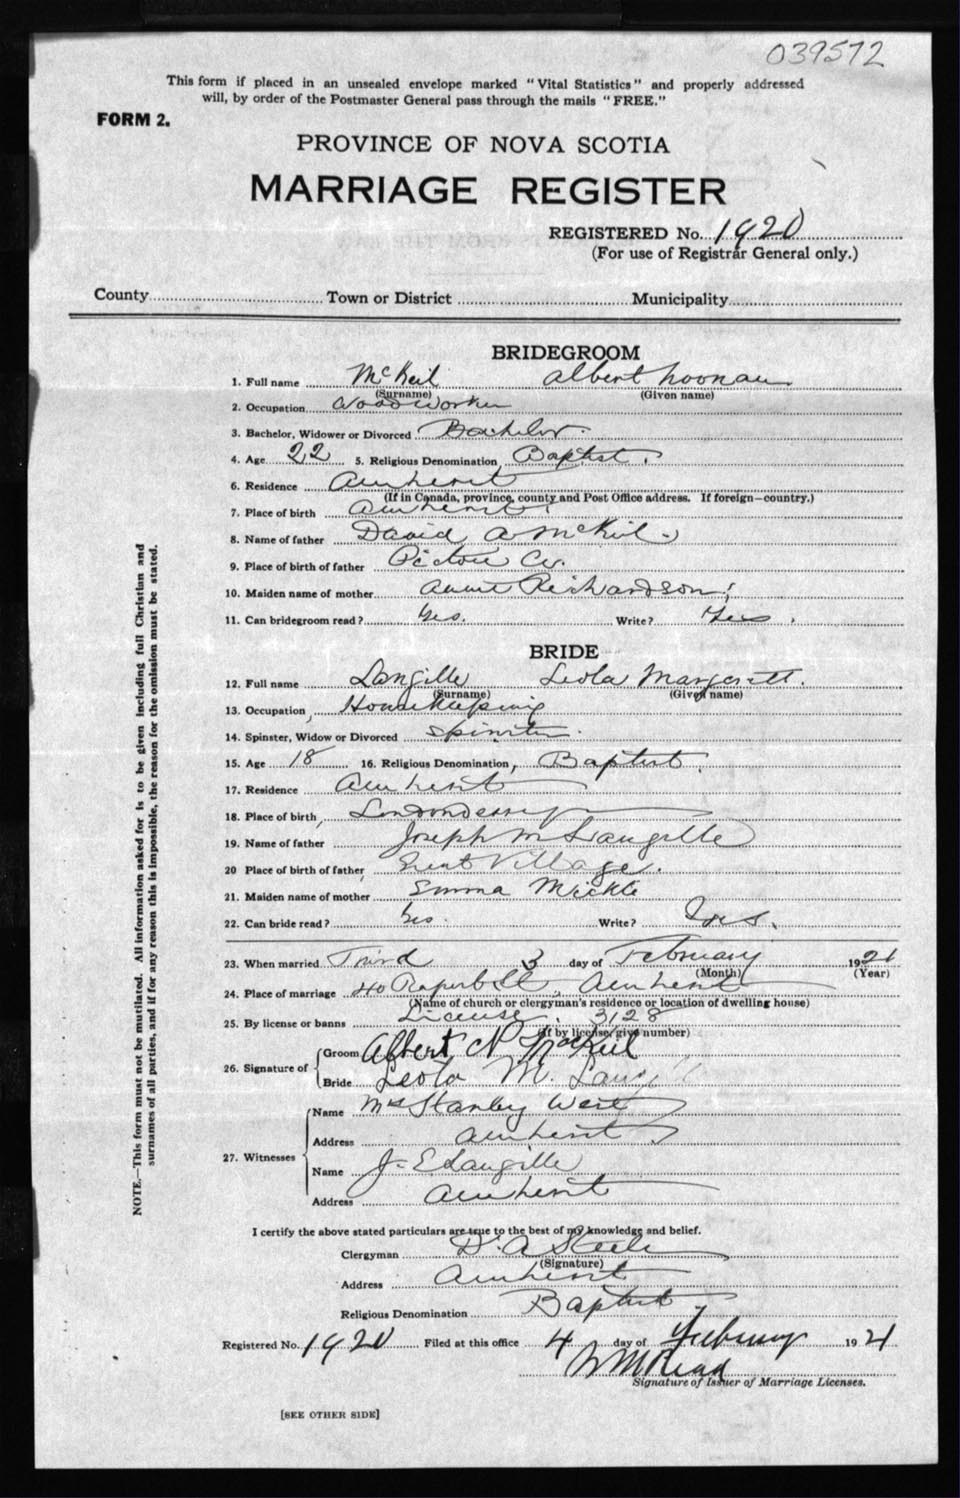 039572
This form if placed in an unsealed envelope marked "Vital Statistics" and properly addressed
will, by order of the Postmaster General pass through the mails "FREE."
FORM 2.
PROVINCE OF NOVA SCOTIA
MARRIAGE REGISTER
REGISTERED No. 1920
(For use of Registrar General only.)
County Town or District Municipality
BRIDEGROOM
1. Full name McKeil Albert Noonan
(Surname) (Given name)
2. Occupation Woodworker
3. Bachelor, Widower or Divorced Bachelor.
4. Age 22 5. Religious Denomination Baptist.
6. Residence Amherst
(If in Canada, province, county and Post Office address. If foreign—country.)
7. Place of birth Amherst
8. Name of father David A McKeil.
9. Place of birth of father Pictou Co.
10. Maiden name of mother Annie Richardson
11. Can bridegroom read? Yes. Write? Yes.
BRIDE
12. Full name Langille Leola Margerett.
(Surname) (Given name)
13. Occupation, Housekeeping
14. Spinster, Widow or Divorced Spinster.
15. Age 18 16. Religious Denomination, Baptist.
17. Residence Amherst
18. Place of birth, Londonderry
19. Name of father Joseph M Langille
20 Place of birth of father, Great Village.
21. Maiden name of mother Emma Mickle
22. Can bride read? Yes. Write? Yes.
23. When married Third 3 day of February 1921
(Month) (Year)
24. Place of marriage 40 St, Amherst
(Name of church or clergyman's residence or location of dwelling house)
25. By license or banns License. 3128
(If by license, give number)
26. Signature of Groom Albert N McKeil
Bride Leola M. Langille
27. Witnesses Name Mrs Stanley West
Address Amherst
Name J. E Langille
Address Amherst
I certify the above stated particulars are true to the best of my knowledge and belief.
Clergyman D. A Steele
(Signature)
Address Amherst
Religious Denomination Baptist
Registered No. 1920 Filed at this office 4 day of February 1921
Read
Signature of Issuer of Marriage Licenses.
[SEE OTHER SIDE]
NOTE.—This form must not be mutilated. All information asked for is to be given including full Christian and
surnames of all parties, and if for any reason this is impossible, the reason for the omission must be stated.